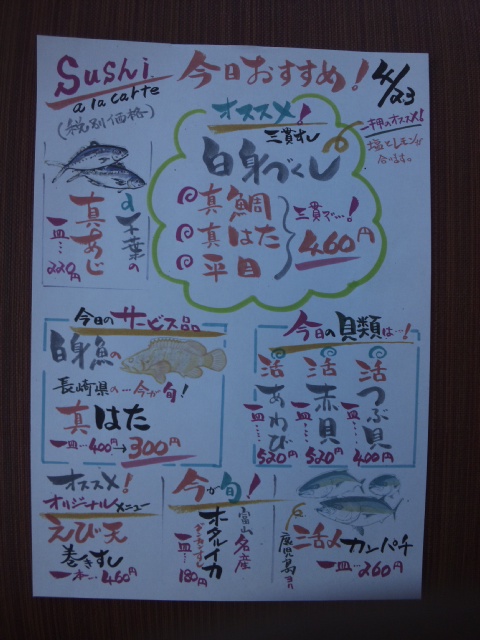 Sushi
a la carte
(税別価格)
今日おすすめ!
4/23
オススメ!
三貫すし
白身づくし
真鯛
真はた
平目
三貫で…!
460円
塩とレモンが
合います。
千葉の
真あじ
一皿…
220円
今日のサービス品
白身魚の
長崎県の…今が旬!
真はた
一皿…400円→300円
今日の貝類は…!
活つぶ貝
一皿…
400円
活赤貝
一皿…
520円
活あわび
一皿…
520円
オススメ!
オリジナルメニュー
えび天
巻きすし
一本…460円
今が旬!
富山名産
ホタルイカ
一皿…
180円
鹿児島
活〆カンパチ
一皿…260円